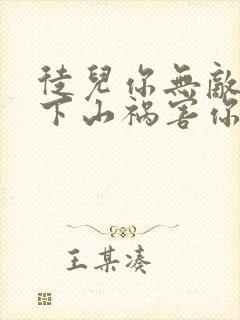 徒兒你無敵
下山禍害你
王某湊